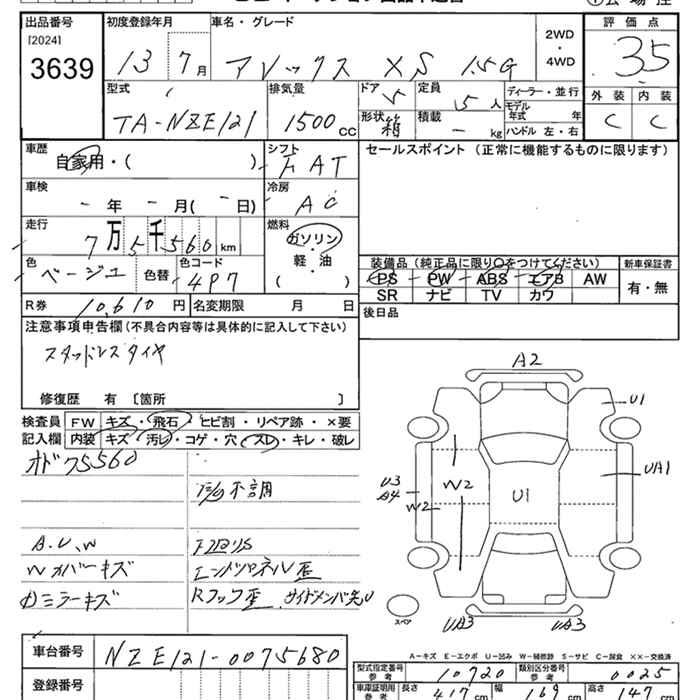 出品番号 初度登録年月 車名・グレード 2WD・4WD 評価点
[2024] 3639
13 7月 アレックス XS 1.5G 3.5
型式 排気量 ドア 定員 ディーラー・並行 外装 内装
TA-NZE121 1500cc 5 5人 モデル年式 年 C C
形状 箱 積載 - kg ハンドル 左・右
車歴 シフト セールスポイント (正常に機能するものに限ります)
自家用・( ) FAT
車検 冷房
- 年 - 月(- 日) AC
走行 燃料
7万5千560km ガソリン・軽・油 ( )
色 色替 色コード 装備品 (純正品に限り○をつけてください) 新車保証書
ベージュ 4P7 PS PW ABS エアB AW 有・無
SR ナビ TV カワ
R券 10,610円 名変期限 月 日 後日品
注意事項申告欄(不具合内容等は具体的に記入して下さい)
スタッドレスタイヤ
修復歴 有 〔箇所 〕
検査員 FW キズ・飛石・ヒビ割・リペア跡・×要
記入欄 内装 キズ・汚レ・コゲ・穴・スレ・キレ・破レ
オド75560
不調
A.U.W
Wカバーキズ エンドパネル歪
ミラーキズ Rフック歪 サイドメンバ先U
A2
U1
UA1
U3
A4
W2
W2
U1
スペア
UA3 UA3
A-キズ E-エクボ U-凹み W-補修跡 S-サビ C-腐食 XX-交換済
車台番号 NZE121-0075680
型式指定番号 参考 10720 類別区分番号 参考 0025
登録番号
車庫証明用 参考 長さ 417cm 幅 169cm 高さ 147cm